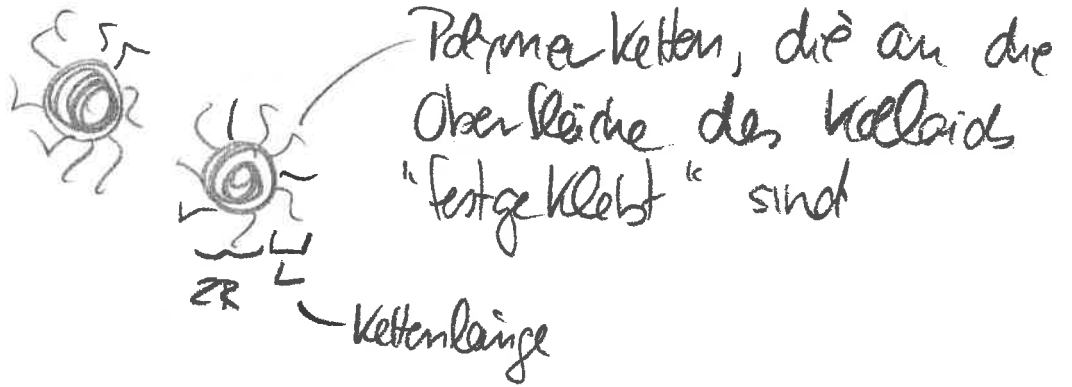 Polymerketten, die an die
Oberfläche des Kolloids
"festgeklebt" sind
2R
L
Kettenlänge